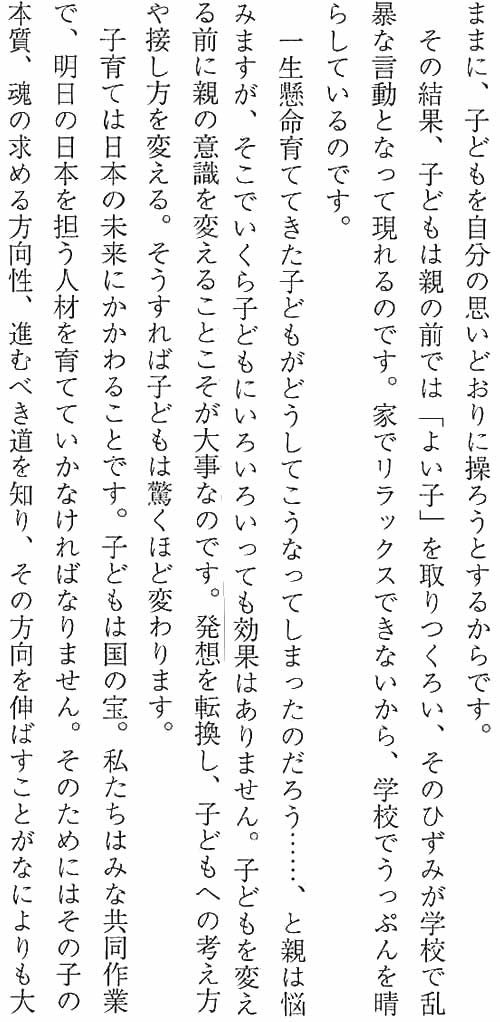 ままに、子どもを自分の思いどおりに操ろうとするからです。
その結果、子どもは親の前では「よい子」を取りつくろい、そのひずみが学校で乱
暴な言動となって現れるのです。家でリラックスできないから、学校でうっぷんを晴
らしているのです。
一生懸命育ててきた子どもがどうしてこうなってしまったのだろう……、と親は悩
みますが、そこでいくら子どもにいろいろいっても効果はありません。子どもを変え
る前に親の意識を変えることこそが大事なのです。発想を転換し、子どもへの考え方
や接し方を変える。そうすれば子どもは驚くほど変わります。
子育ては日本の未来にかかわることです。子どもは国の宝。私たちはみな共同作業
で、明日の日本を担う人材を育てていかなければなりません。そのためにはその子の
本質、魂の求める方向性、進むべき道を知り、その方向を伸ばすことがなによりも大